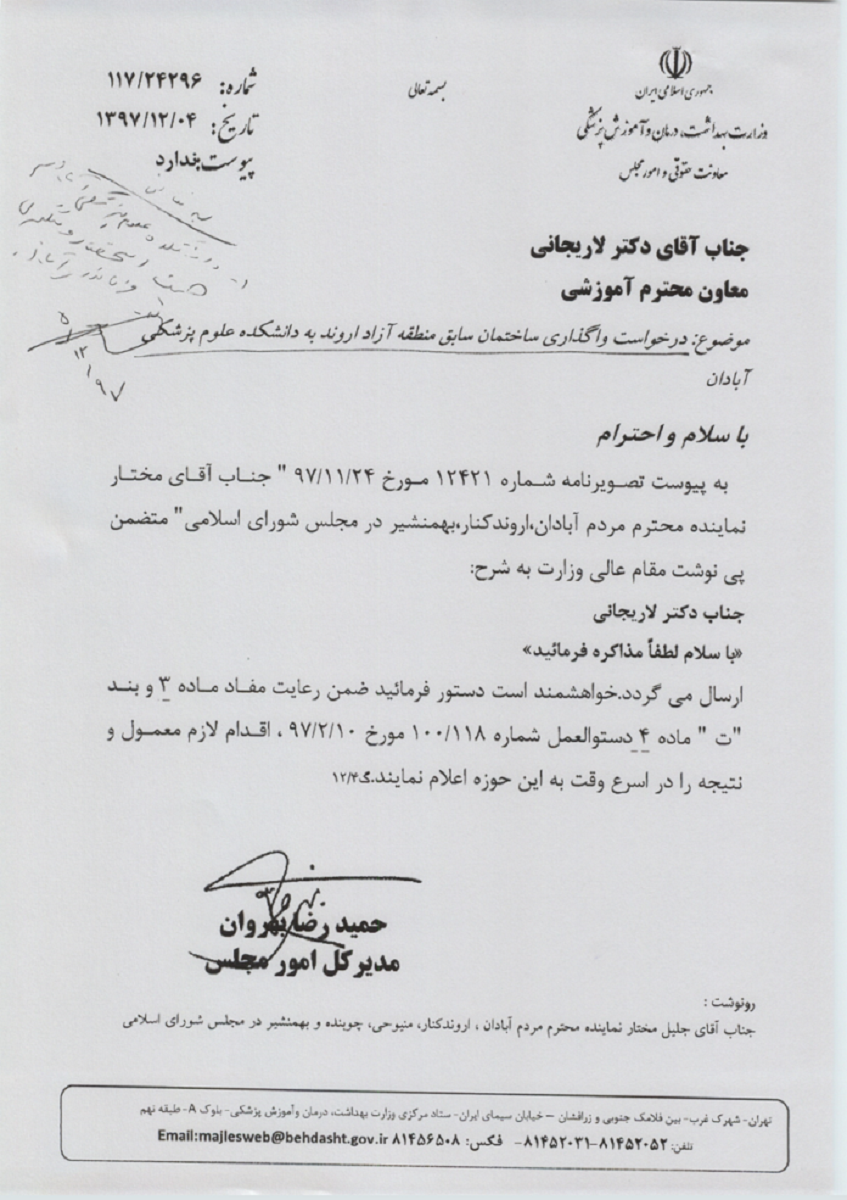 جمهوری اسلامی ایران
وزارت بهداشت، درمان و آموزش پزشکی
معاونت حقوقی و امور مجلس
بسمه تعالی
شماره: ۱۱۷/۲۴۲۹۶
تاریخ: ۱۳۹۷/۱۲/۰۴
پیوست: ندارد
جناب آقای دکتر لاریجانی
معاون محترم آموزشی
موضوع: درخواست واگذاری ساختمان سابق منطقه آزاد اروند به دانشکده علوم پزشکی
آبادان
با سلام و احترام
به پیوست تصویرنامه شماره ۱۲۴۲۱ مورخ ۹۷/۱۱/۲۴ " جناب آقای مختار
نماینده محترم مردم آبادان،اروندکنار،بهمنشیر در مجلس شورای اسلامی" متضمن
پی نوشت مقام عالی وزارت به شرح:
جناب دکتر لاریجانی
«با سلام لطفاً مذاکره فرمائید»
ارسال می گردد.خواهشمند است دستور فرمائید ضمن رعایت مفاد ماده ۳ و بند
"ت " ماده ۴ دستوالعمل شماره ۱۰۰/۱۱۸ مورخ ۹۷/۲/۱۰ ، اقدام لازم معمول و
نتیجه را در اسرع وقت به این حوزه اعلام نمایند.گ۱۲/۴
حمید رضا بهروان
مدیرکل امور مجلس
رونوشت :
جناب آقای جلیل مختار نماینده محترم مردم آبادان ، اروندکنار، منیوحی، چوبنده و بهمنشیر در مجلس شورای اسلامی
تهران- شهرک غرب- بین فلامک جنوبی و زرافشان – خیابان سیمای ایران- ستاد مرکزی وزارت بهداشت، درمان وآموزش پزشکی- بلوک A- طبقه نهم
تلفن: ۸۱۴۵۲۰۵۲–۸۱۴۵۲۰۳۱- فکس: ۸۱۴۵۶۵۰۸ Email:majlesweb@behdasht.gov.ir